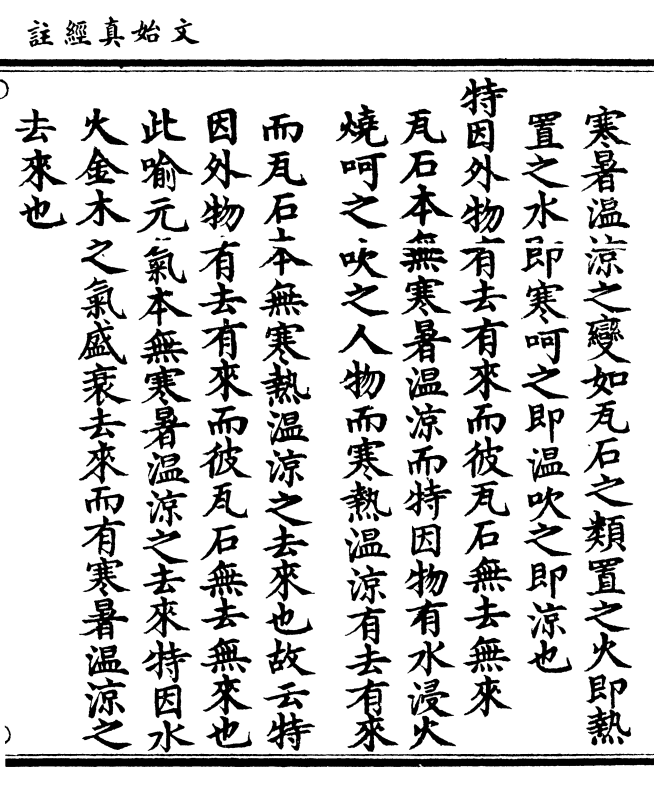 文始真經註
寒暑温涼之變如瓦石之類置之火即熱
置之水即寒呵之即温吹之即涼也
特因外物有去有來而彼瓦石無去無來
瓦石本無寒暑温涼而特因物有水浸火
燒呵之吹之人物而寒熱温涼有去有來
而瓦石本無寒熱温涼之去來也故云特
因外物有去有來而彼瓦石無去無來也
此喻元氣本無寒暑温涼之去來特因水
火金木之氣盛衰去來而有寒暑温涼之
去來也